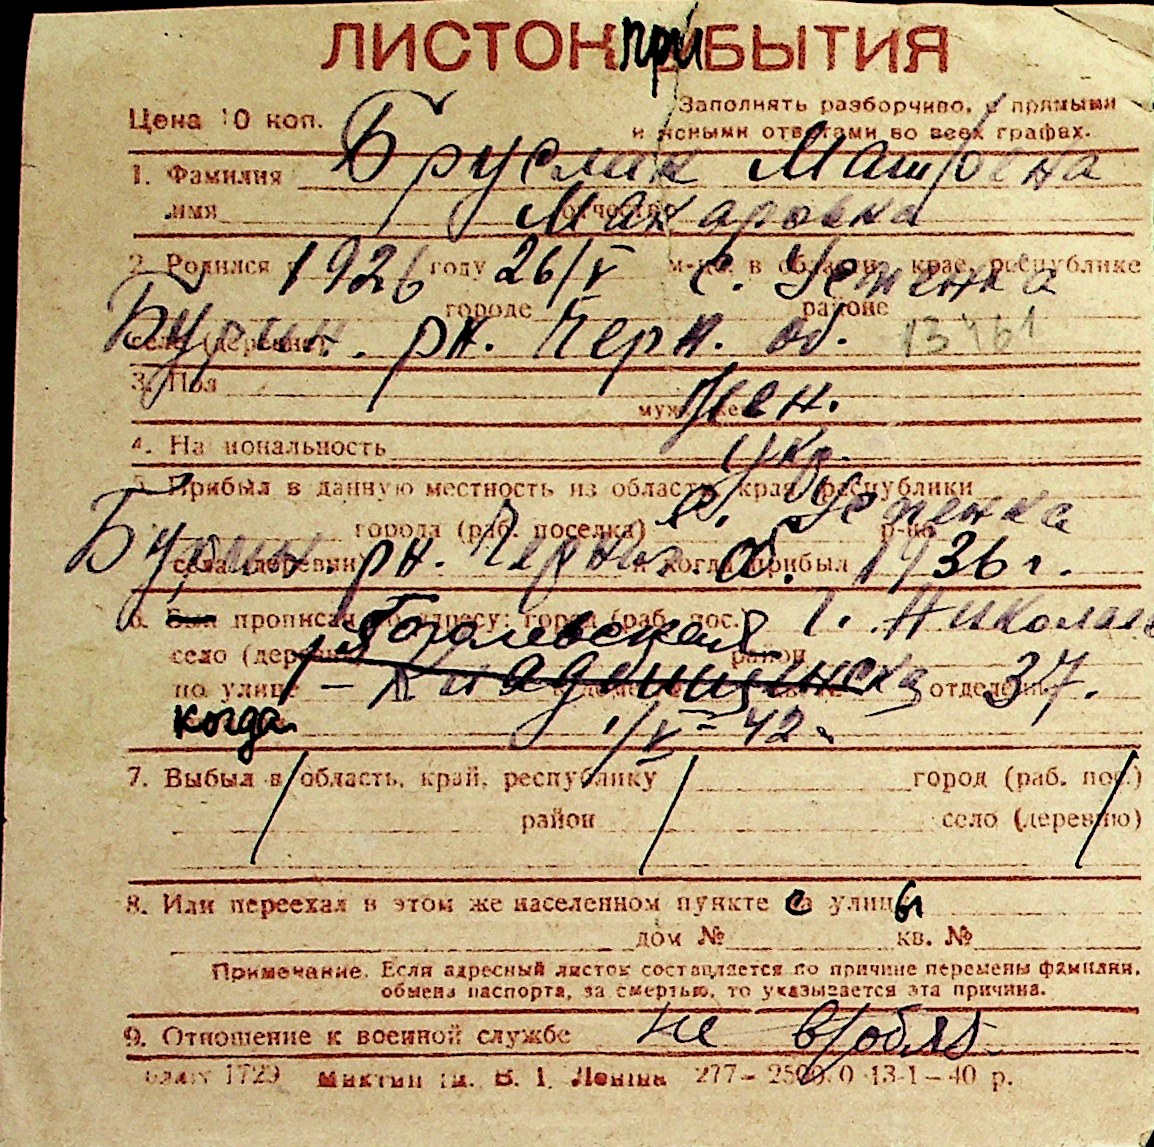 ЛИСТОК прибЫТИЯ
Цена 10 коп.
Заполнять разборчиво, с прямыми
и ясными ответами во всех графах.
1. Фамилия Бруслик Матрена
имя отчество Макаровна
2. Родился в 1926 году 26/V м-це, в области, крае, республике с. Успенка
городе районе
село (деревня) Бурин. рн. Черн. об. 13461
3. Пол жен.
муж. жен.
4. Национальность укр.
5. Прибыл в данную местность из области, края, республики
города (раб. поселка) с. Успенка р-на
села (деревни) Бурин. рн. Черниг. об. и когда прибыл 1936 г.
6. Был прописан по адресу: город (раб. пос.) г. Николаев
село (деревня) Гоголевская район
по улице отделен. 37.
когда 1/V-42.
7. Выбыл в область, край, республику город (раб. пос.)
район село (деревню)
8. Или переехал в этом же населенном пункте с улицы
дом № кв. №
Примечание. Если адресный листок составляется по причине перемены фамилии,
обмена паспорта, за смертью, то указывается эта причина.
9. Отношение к военной службе не в/обяз.
бланк 1729 им. В. І. Леніна 277— 13-1—40 р.